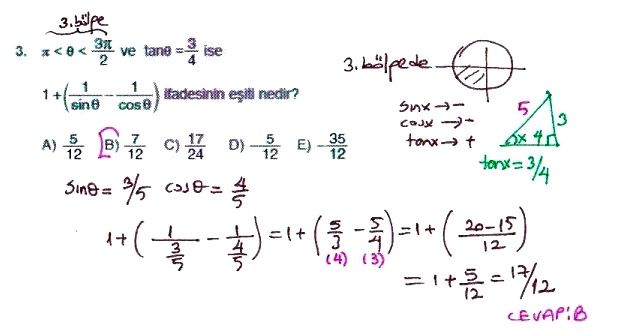 3. bölge
3. π < θ < 3π/2 ve tanθ = 3/4 ise
1 + (1/sinθ - 1/cosθ) ifadesinin eşiti nedir?
A) 5/12 B) 7/12 C) 17/24 D) - 5/12 E) - 35/12
3. bölgede
sinx → -
cosx → -
tanx → +
5
3
x 4
tanx = 3/4
sinθ = 3/5 cosθ = 4/5
1 + (1/(3/5) - 1/(4/5)) = 1 + (5/3 - 5/4) = 1 + (20-15/12)
(4) (3)
= 1 + 5/12 = 17/12
CEVAP: B